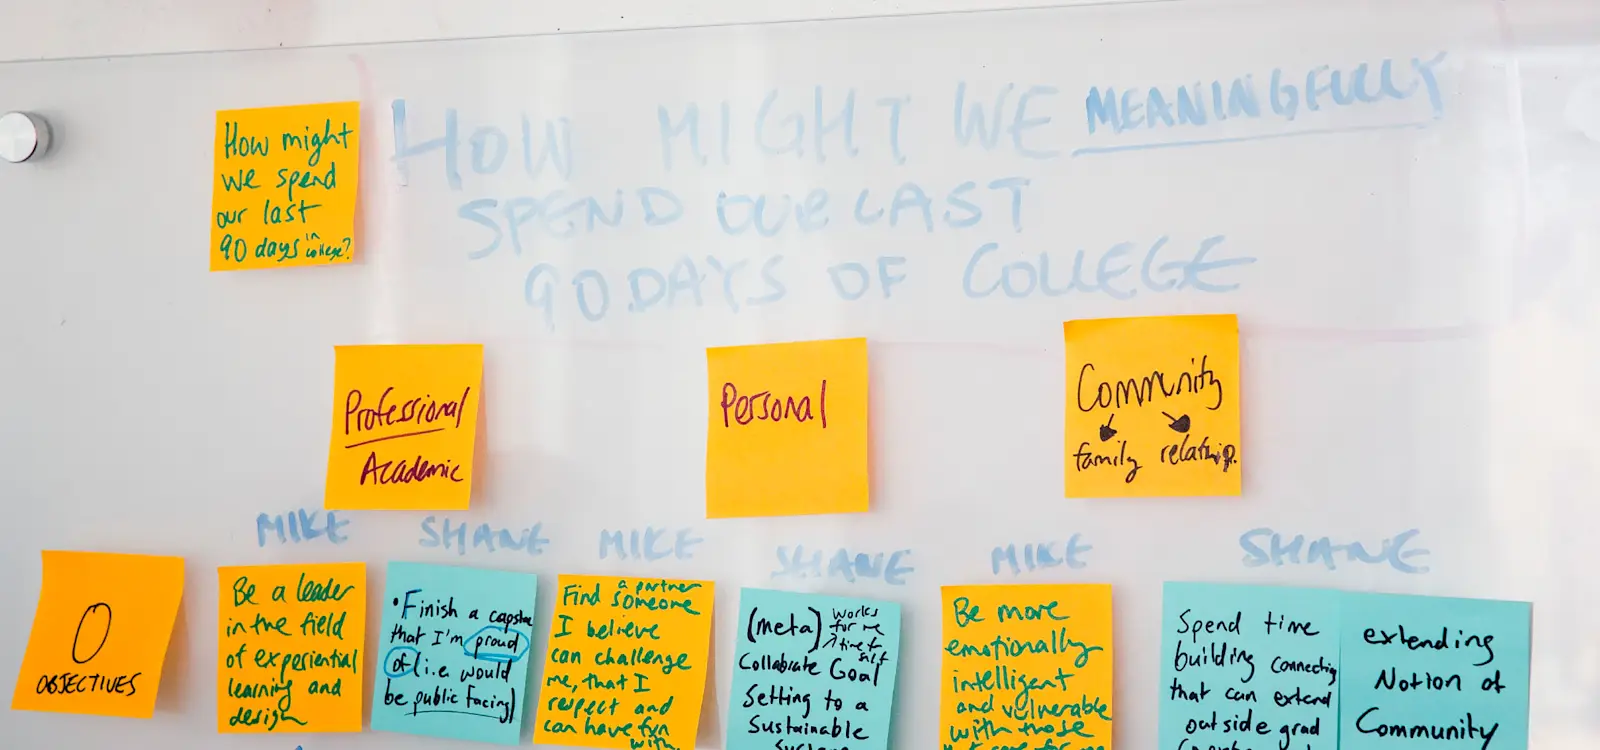 How might
we spend
our last
90 days in
college?
HOW MIGHT WE MEANINGFULLY
SPEND OUR LAST
90 DAYS OF COLLEGE
Professional
Academic
Personal
Community
family relatnip.
MIKE
SHANE
MIKE
SHANE
MIKE
SHANE
O
OBJECTIVES
Be a leader
in the field
of experiential
learning and
design
• Finish a capstone
that I'm proud
of (i.e. would
be public facing)
Find a partner
someone
I believe
can challenge
me, that I
respect and
can have fun
with.
(meta) works
for me
Collabrate Goal
Setting to a
Sustainable
System
Be more
emotionally
intelligent
and vulnerable
with those
Spend time
building connecting
that can extend
outside grad
extending
Notion of
Community